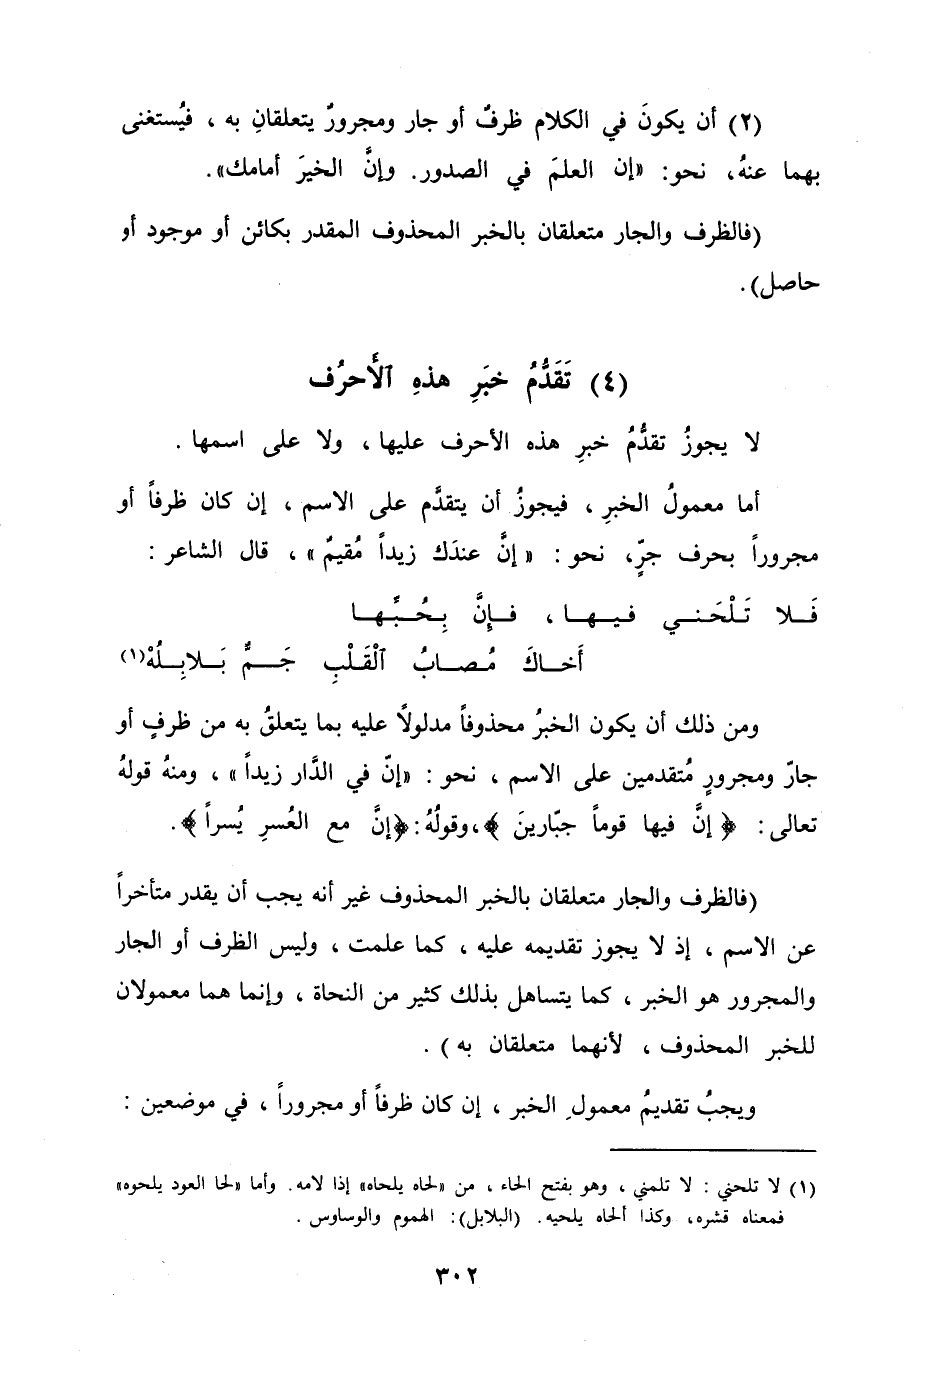 (٢) أن يكونَ في الكلام ظرفٌ أو جار ومجرورٌ يتعلقانِ به ، فيُستغنى
بهما عنهُ، نحو: «إن العلمَ في الصدور. وإنَّ الخيرَ أمامك».
(فالظرف والجار متعلقان بالخبر المحذوف المقدر بكائن أو موجود أو
حاصل).
(٤) تَقَدُّمُ خبَرِ هذهِ ٱلأَحرُف
لا يجوزُ تقدُّمُ خبرِ هذه الأحرف عليها ، ولا على اسمها .
أما معمولُ الخبرِ ، فيجوزُ أن يتقدَّم على الاسم ، إن كان ظرفاً أو
مجروراً بحرف جرٍّ، نحو : « إنَّ عندَك زيداً مُقيمٌ » ، قال الشاعر :
فَـلا تَـلْحَـنـي فـيـهـا ، فـإِنَّ بِـحُـبِّـهـا
أَخـاكَ مُـصـابُ ٱلْقَـلْبِ جَـمٌّ بَـلابِـلُهْ(١)
ومن ذلك أن يكون الخبرُ محذوفاً مدلولاً عليه بما يتعلقُ به من ظرفٍ أو
جارّ ومجرورٍ مُتقدمين على الاسم ، نحو : «إنّ في الدَّار زيداً » ، ومنهُ قولهُ
تعالى : ﴿ إنَّ فيها قوماً جبّارينَ ﴾، وقولُهُ : ﴿إنَّ مع العُسرِ يُسراً ﴾.
(فالظرف والجار متعلقان بالخبر المحذوف غير أنه يجب أن يقدر متأخراً
عن الاسم ، إذ لا يجوز تقديمه عليه ، كما علمت ، وليس الظرف أو الجار
والمجرور هو الخبر ، كما يتساهل بذلك كثير من النحاة ، وإنما هما معمولان
للخبر المحذوف ، لأنهما متعلقان به ) .
ويجبُ تقديمُ معمولِ الخبر ، إن كان ظرفاً أو مجروراً ، في موضعين :
(١) لا تلحني : لا تلمني ، وهو بفتح الحاء ، من «لحاه يلحاه» إذا لامه. وأما «لحا العود يلحوه»
فمعناه قشره، وكذا ألحاه يلحيه. (البلابل): الهموم والوساوس .
٣٠٢